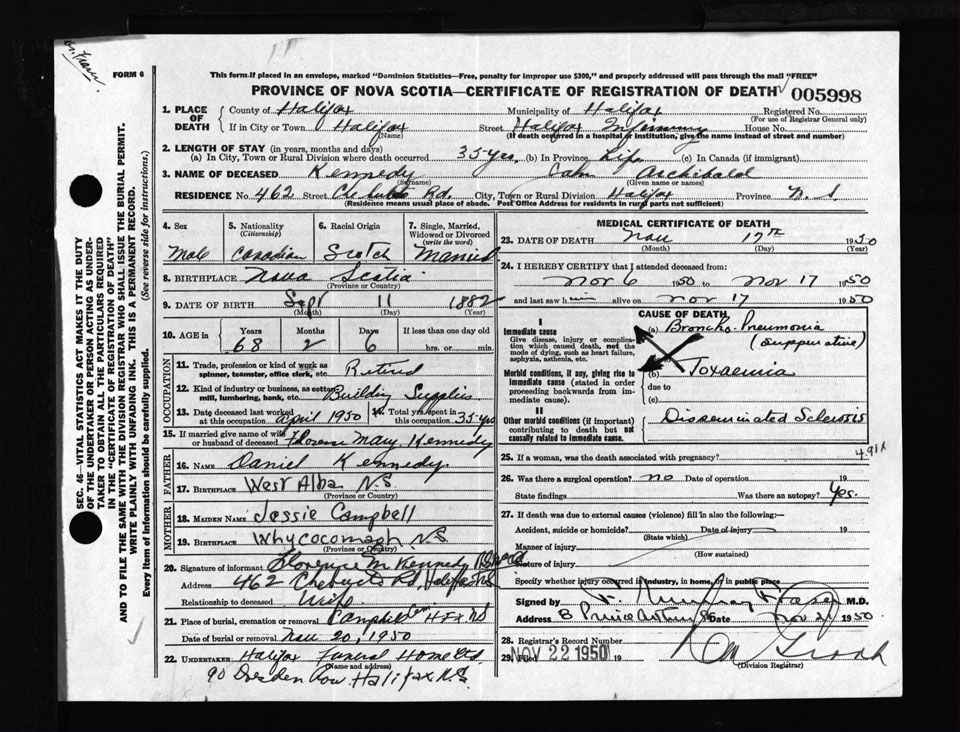 FORM 6
This form if placed in an envelope, marked "Dominion Statistics—Free, penalty for improper use $300," and properly addressed will pass through the mail "FREE"
PROVINCE OF NOVA SCOTIA—CERTIFICATE OF REGISTRATION OF DEATH
005998
SEC. 46—VITAL STATISTICS ACT MAKES IT THE DUTY
OF THE UNDERTAKER OR PERSON ACTING AS UNDER-
TAKER TO OBTAIN ALL THE PARTICULARS REQUIRED
IN THE "CERTIFICATE OF REGISTRATION OF DEATH"
AND TO FILE THE SAME WITH THE DIVISION REGISTRAR WHO SHALL ISSUE THE BURIAL PERMIT.
WRITE PLAINLY WITH UNFADING INK. THIS IS A PERMANENT RECORD.
Every item of Information should be carefully supplied. (See reverse side for instructions.)
1. PLACE OF DEATH
County of Halifax Municipality of Halifax Registered No.
(For use of Registrar General only)
If in City or Town Halifax Street Halifax Infirmary House No.
(Name) (If death occurred in a hospital or institution, give the name instead of street and number)
2. LENGTH OF STAY (in years, months and days)
(a) In City, Town or Rural Division where death occurred 35 yrs. (b) in Province Life (c) In Canada (if immigrant)
3. NAME OF DECEASED Kennedy John Archibald
(Surname) (Given name or names)
RESIDENCE No. 462 Street Chebucto Rd. City, Town or Rural Division Halifax Province N.S.
(Residence means usual place of abode. Post Office Address for residents in rural parts not sufficient)
4. Sex
Male
5. Nationality (Citizenship)
Canadian
6. Racial Origin
Scotch
7. Single, Married, Widowed or Divorced (write the word)
Married
8. BIRTHPLACE Nova Scotia
(Province or Country)
9. DATE OF BIRTH Sept 11 1882
(Month) (Day) (Year)
10. AGE in Years Months Days If less than one day old
68 2 6 hrs. or min.
OCCUPATION
11. Trade, profession or kind of work as spinner, teamster, office clerk, etc. Retired
12. Kind of industry or business, as cotton mill, lumbering, bank, etc. Building Supplies
13. Date deceased last worked at this occupation April 1950 14. Total yrs. spent in this occupation 35 yrs
15. If married give name of wife or husband of deceased Florence Mary Kennedy
FATHER
16. NAME Daniel Kennedy.
17. BIRTHPLACE West Alba N.S.
(Province or Country)
MOTHER
18. MAIDEN NAME Jessie Campbell
19. BIRTHPLACE Whycocomagh N.S.
(Province or Country)
20. Signature of informant Florence M Kennedy
Address 462 Chebucto Rd, Halifax NS
Relationship to deceased Wife
21. Place of burial, cremation or removal Camphill Cem HFX NS
Date of burial or removal Nov 20, 1950
22. UNDERTAKER Halifax Funeral Home Ltd.
(Name and address)
90 Dresden Row. Halifax N.S.
MEDICAL CERTIFICATE OF DEATH
23. DATE OF DEATH Nov 17th 1950
(Month) (Day) (Year)
24. I HEREBY CERTIFY that I attended deceased from:
Nov 6 1950 to Nov 17 1950
and last saw him alive on Nov 17 1950
CAUSE OF DEATH
I
Immediate cause
Give disease, injury or complication which caused death, not the mode of dying, such as heart failure, asphyxia, asthenia, etc.
(a) Broncho-Pneumonia
(Suppurative)
Morbid conditions, if any, giving rise to immediate cause (stated in order proceeding backwards from immediate cause).
(b) Toxaemia
due to
(c)
II
Other morbid conditions (if important) contributing to death but not causally related to immediate cause.
Disseminated Sclerosis
25. If a woman, was the death associated with pregnancy?
491X
26. Was there a surgical operation? no Date of operation 19
State findings Was there an autopsy? Yes.
27. If death was due to external causes (violence) fill in also the following:
Accident, suicide or homicide? Date of injury 19
(State which)
Manner of injury
(How sustained)
Nature of injury
Specify whether injury occurred in industry, in home, or in public place
Signed by Murray Fraser M.D.
Address Date Nov 21 1950
28. Registrar's Record Number
29. Filed NOV 22 1950 19
(Division Registrar)